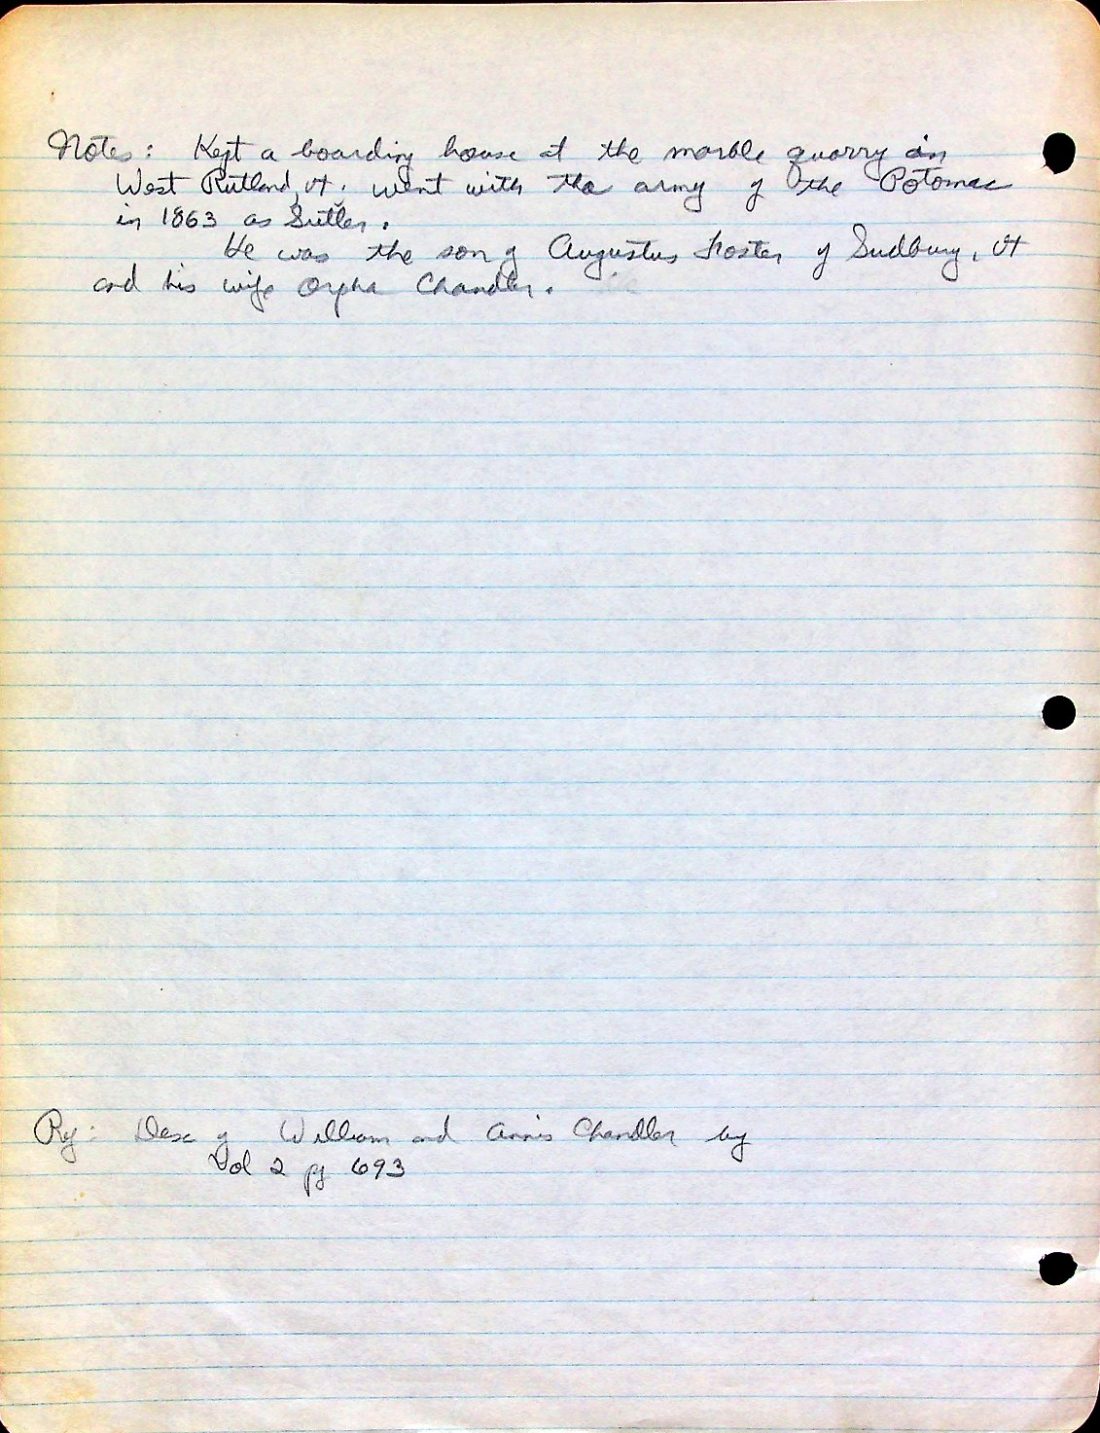 Notes: Kept a boarding house at the marble quarry in
West Rutland, Vt. Went with the army of the Potomac
in 1863 as Sutler.
He was the son of Augustus Foster of Sudbury, Vt
and his wife Orpha Chandler.
Ref: Desc of William and Annis Chandler by
Vol 2 pg 693